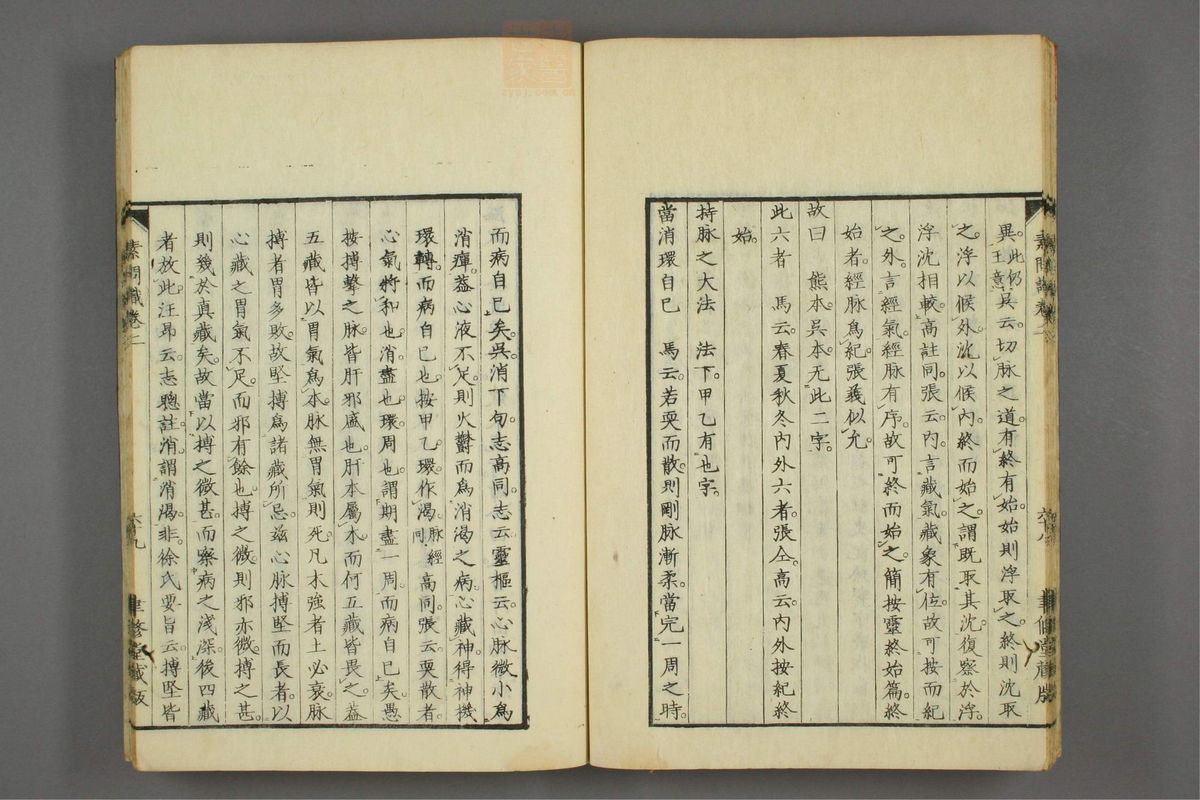 異。此仍王意。吳云。切脉之道。有終有始。始則浮取之。終則沈取
之。浮以候外。沈以候內。終而始之。謂既取其沈。復察於浮。
浮沈相較。高註同。張云。內。言藏氣。藏象有位。故可按而紀
之。外。言經氣。經脉有序。故可終而始之。簡按靈終始篇。終
始者。經脉爲紀。張義似允。
故曰　熊本。吳本。无此二字。
此六者　馬云。春夏秋冬內外六者。張仝。高云。內外按紀終
始。
持脉之大法　法下。甲乙有也字。
當消環自已　馬云。若耎而散。則剛脉漸柔。當完一周之時。
素問識卷二　六十八　聿修堂藏版
而病自已矣。吳消下句。志高同。志云。靈樞云。心脉微小爲
消癉。蓋心液不足。則火鬱而爲消渴之病。心藏神。得神機
環轉。而病自已也。按甲乙環作渴。脉經同。高同。張云。耎散者。
心氣將和也。消盡也。環周也。謂期盡一周。而病自已矣。愚
按搏擊之脉。皆肝邪盛也。肝本屬木。而何五藏皆畏之。蓋
五藏皆以胃氣爲本。脉無胃氣則死。凡木強者土必衰。脉
搏者胃多敗。故堅搏爲諸藏所忌。茲心脉搏堅而長者。以
心藏之胃氣不足。而邪有餘也。搏之微。則邪亦微。搏之甚。
則幾於真藏矣。故當以搏之微甚。而察病之淺深。後四藏
者放此。汪昂云。志聰註。消謂消渴。非。徐氏要旨云。搏堅皆
素問識卷二　六十九　聿修堂藏版